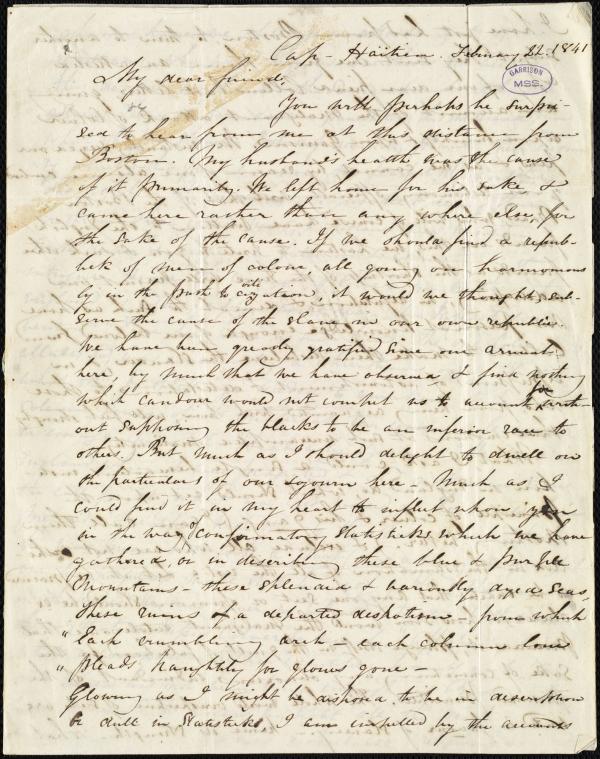 Cap-Haïtien. February 22. 1841
GARRISON
MSS.
My dear friend,
You will perhaps be surpri-
sed to hear from me at this distance from
Boston. My husband's health was the cause
of it primarily. We left home for his sake, &
came here rather than any where else for
the sake of the cause. If we should find a repub-
lick of men of colour, all going on harmonious
ly in the path to civilization, it would we thought, sub-
serve the cause of the slave in our own republic.
We have been greatly gratified since our arrival
here, by much that we have observed, & find nothing
which candour would not compel us to account for with-
out supposing the blacks to be an inferior race to
others. But much as I should delight to dwell on
the particulars of our sojourn here - Much as I
could find it in my heart to inflict upon you
in the way of confirmatory statisticks which we have
gathered, or in describing these blue & purple
mountains - these splendid & variously dyed seas,
these ruins of a departed despotism - from which
"Each crumbling arch - each column lone
"pleads haughtily for glories gone -
Glowing as I might be disposed to be in description
or dull in statisticks, I am impelled by the accounts